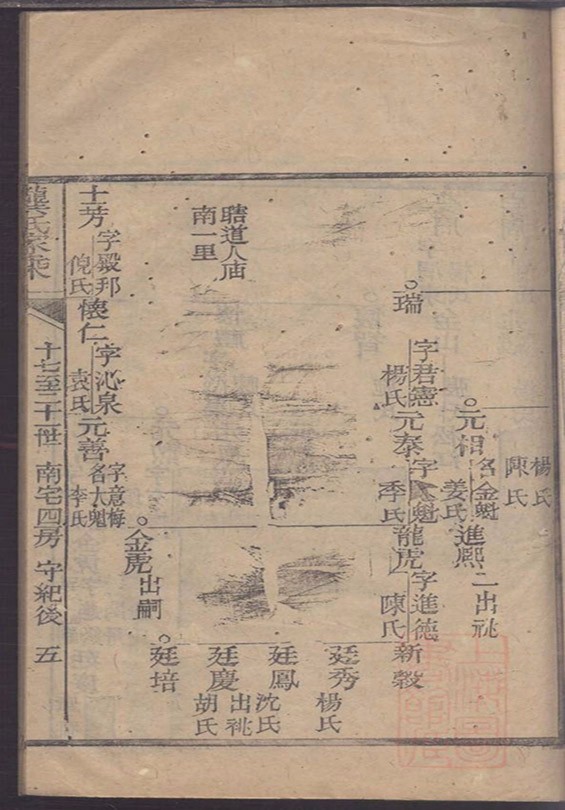 楊氏
陳氏
元相
名金魁
姜氏
進熙
二出祧
瑞
字君憲
楊氏
元泰
字
魁
季氏
龍虎
字進德
陳氏
新穀
廷秀
楊氏
廷鳳
沈氏
廷慶
出祧
胡氏
廷培
瞎道人庙
南一里
金虎
出嗣
士芳
字殿邦
倪氏
懷仁
字沁泉
袁氏
元善
字意梅
名大魁
李氏
龔氏家乘
十七至二十世
南宅四房
守紀後
五